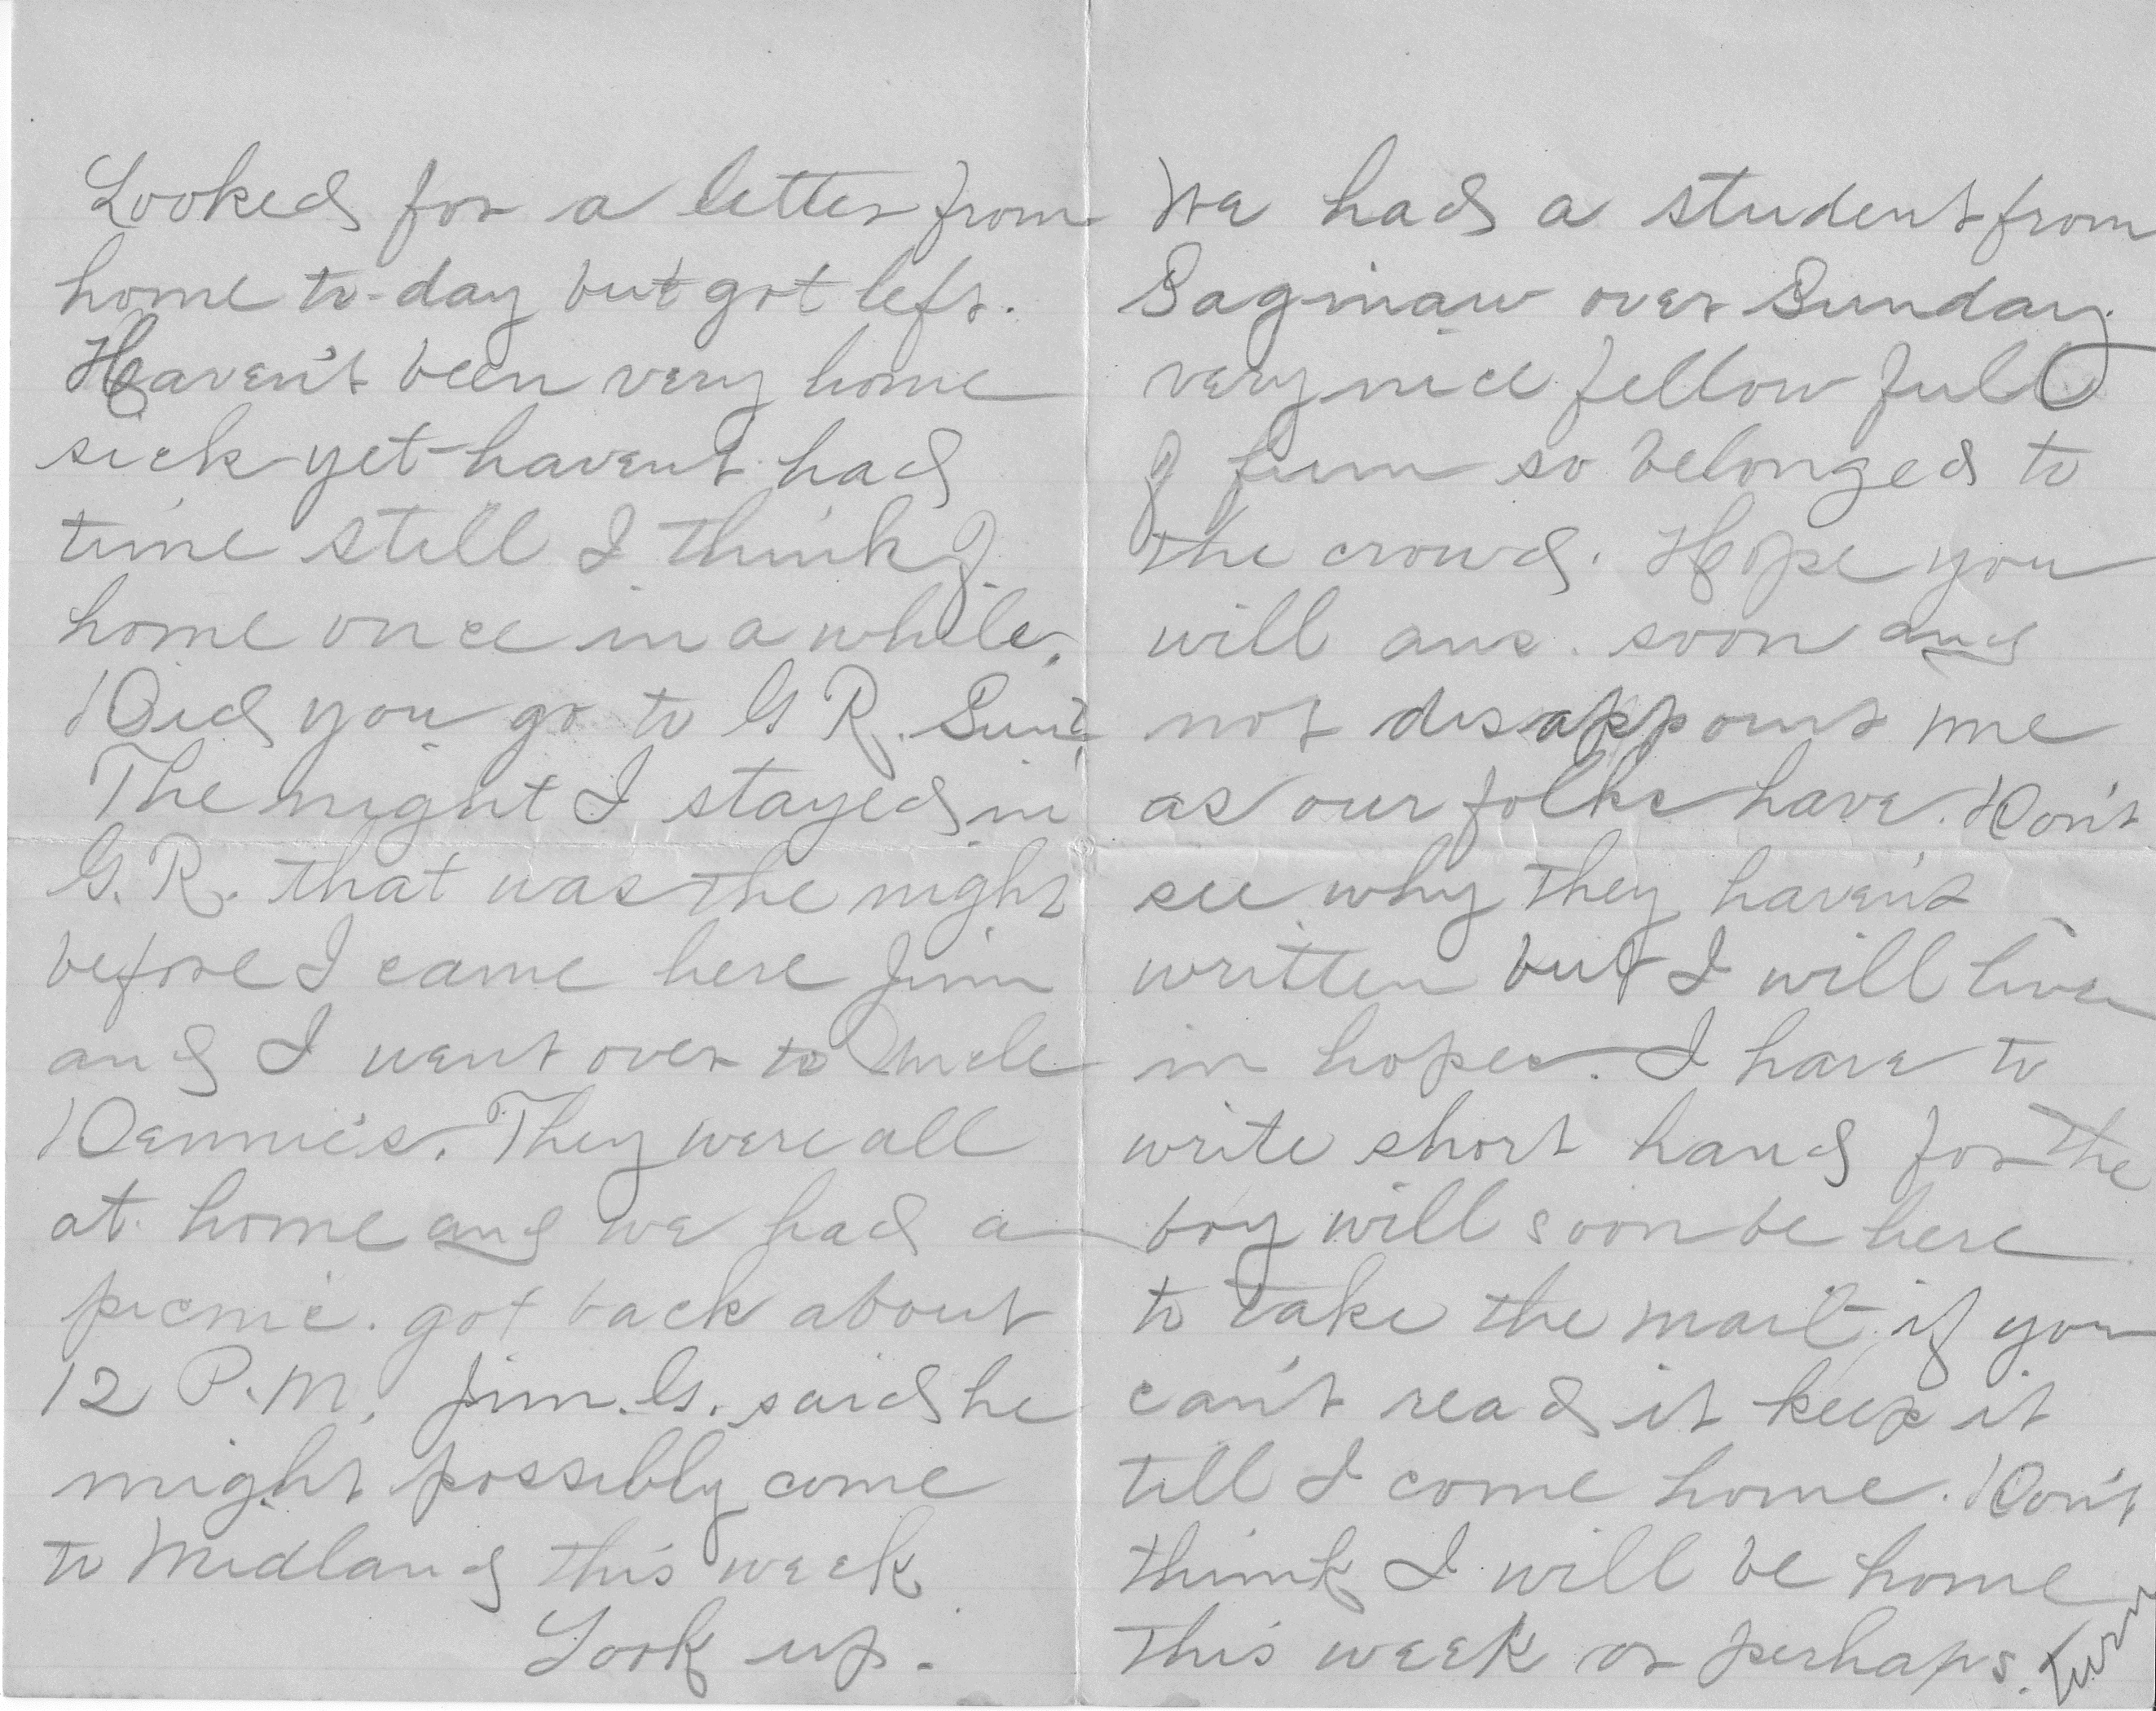 Looked for a letter from
home to-day but got left.
Haven't been very home
sick yet haven't had
time still I think of
home once in a while.
Did you go to G R. Sun?
The night I stayed in
G. R. that was the night
before I came here Jim
and I went over to Uncle
Dennie's. They were all
at home and we had a
picnic. got back about
12 P.M. Jim. G. said he
might possibly come
to Midland this week.
Look up.
We had a student from
Saginaw over Sunday.
very nice fellow full
of fun so belonged to
the crowd. Hope you
will ans. soon and
not disappoint me
as our folks have. Don't
see why they haven't
written but I will live
in hopes. I have to
write short hand for the
boy will soon be here
to take the mail if you
can't read it keep it
till I come home. Don't
think I will be home
this week or perhaps.
turn